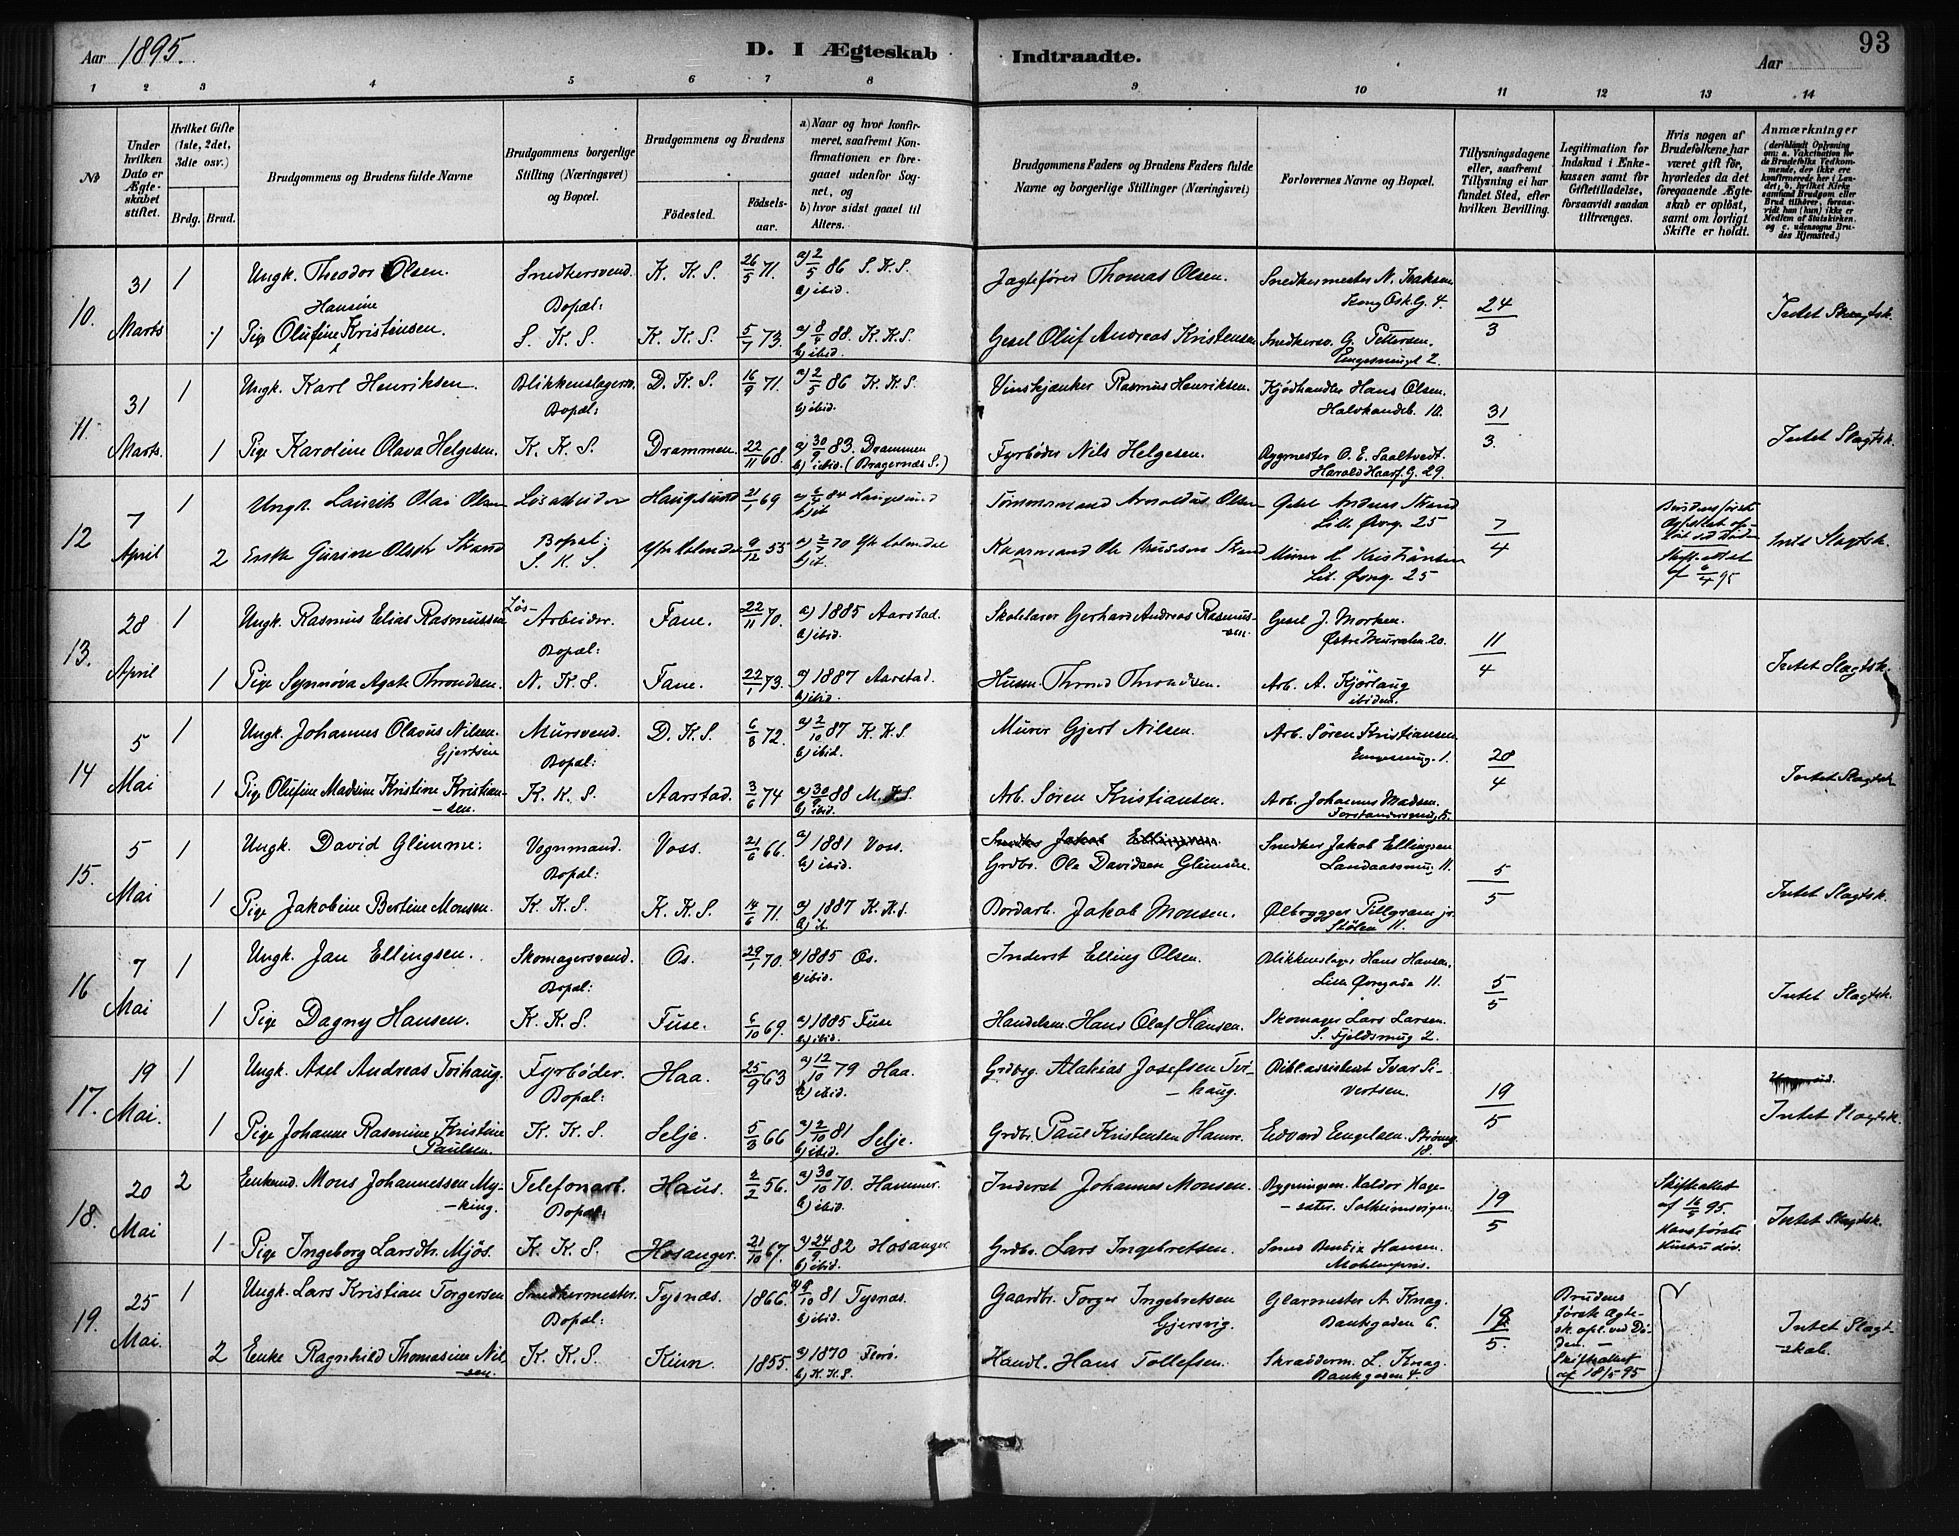 Aar 1895.
D. I Ægteskab
Indtraadte.
Aar
93
1 2 3 4 5 6 7 8 9 10 11 12 13 14
No
Under hvilken Dato er Ægteskabet stiftet.
Hvilket Gifte (1ste, 2det, 3die osv.)
Brdg. Brud.
Brudgommens og Brudens fulde Navne
Brudgommens borgerlige Stilling (Næringsvei) og Bopæl.
Brudgommens og Brudens
Fødested.
Fødselsaar.
a) Naar og hvor konfirmeret, saafremt Konfirmationen er foregaaet udenfor Sognet, og
b) hvor sidst gaaet til Alters.
Brudgommens Faders og Brudens Faders fulde Navne og borgerlige Stillinger (Næringsvei)
Forlovernes Navne og Bopæl.
Tillysningsdagene eller, saafremt Tillysning ei har fundet Sted, efter hvilken Bevilling.
Legitimation for Indskud i Enkekassen samt for Giftetilladelse, forsaavidt saadan tiltrænges.
Hvis nogen af Brudefolkene har været gift før, hvorledes da det foregaaende Ægteskab er opløst, samt om lovligt Skifte er holdt.
Anmærkninger (deriblandt Oplysning om: a. Vakcination for de Brudefolks Vedkommende, der ikke ere konfirmerede her i Landet; b. hvilket Kirkesamfund Brudgom eller Brud tilhører, forsaavidt han (hun) ikke er Medlem af Statskirken, og c. udensogns Brudes Hjemsted.)
10. 31 Marts 1 Ungk. Theodor Olsen. Snedkersvend. Bopæl: K. K. S. 26/5 71. a) 2/5 86 S. K. S. b) ibid. Jagtefører Thomas Olsen. Snedkermester N. Isaksen 24/3
1 Pige Olufine Hansine Kristensen. S. K. S. K. K. S. 5/7 73. 88. K. K. S. b) ibid. Gesel Oluf Andreas Kristensen Snedkersv. G. Pettersen. Intet Slagtsk.
11. 31 Marts. 1 Ungk. Karl Henriksen. Blikkenslagersv. Bopæl: D. K. S. 16/9 71. a) 2/5 86 K. K. S. b) ibid. Vinskjænker Rasmus Henriksen. Kjødhandler Hans Olsen. 10. 31/3.
1 Pige Karoline Olava Helgesen. K. K. S. Drammen. 22/11 68. a) 30/9 83. Drammen b) ibid. (Bragernæs S.) Fyrbøder Nils Helgesen. Bygmester O. E. Saaltvedt. Harald Haarf. G. 29. Intet Slagtsk.
12 7 April 1 Ungk. Laurits Olai Olsen Løsarbeider Bopæl: Haugesund 21/1 69 84 Haugesund b) it Tømmermand Arnoldus Olsen Gesel Anders Strand Lill. Øvreg. 25 7/4
2 Enke Gurine Olsdtr Strand S. K. S. Ytre Holmedal 9/12 55 70 Ytr Holmedal b) it. Kaarmand Ole Strand Murer Kristiansen Lil. Øvreg. 25 Brudens første Ægteskab opløst ved Døden Skifteattest af 6/4 95 Intet Slagtsk.
13. 28 April 1 Ungk. Rasmus Elias Rasmussen Løs-Arbeider. Bopæl: Fane. 22/11 70. a) 1885 Aarstad. b) ibid. Skolelærer Gerhard Andreas Rasmussen. Gesel J. Morken. Østre Muralm. 20. 11/4
1 Pige Synnøva Agate Throndsen. N. K. S. Fane. 22/1 73. a) 1887 Aarstad. b) ibid. Husm. Thrond Throndsen. Arb. A. Kjørlaug ibidem. Intet Slagtsk.
14 5 Mai 1 Ungk. Johannes Olavus Nilsen. Gjertsen Mursvend. Bopæl: D. K. S. 6/8 72. a) 2/10 87 K. K. S. b) ibid. Murer Gjert Nilsen. Arb. Søren Kristiansen 1. 28/4
1 Pige Olufine Madsine Kristine Kristiansen. K. K. S. Aarstad. 3/6 74 a) 30/9 88 M. K. S. b) ibid. Arb. Søren Kristiansen. Arb. Johannes Madsen. Intet Slagtsk.
15. 5 Mai 1 Ungk. David Glimme. Vognmand. Bopæl: Voss. 21/6 66. a) 1881 Voss. b) ibid. Grdbr. Ole Davidsen Glimme. Snedker Jakob Ellingsen Landaassmug 11. 5/5
1 Pige Jakobine Bertine Monsen. K. K. S. K. K. S. 14/6 71. a) 1887 K. K. S. b) it. Bordarb. Jakob Monsen. Ølbrygger Pillgram jr. Stølen 11. Intet Slagtsk.
16 7 Mai 1 Ungk. Jan Ellingsen. Skomagersvend. Bopæl: Os. 29/1 70. a) 1885 Os. b) ibid. Inderst Elling Olsen. Blikkenslager Hans Hansen. Lille Øvregade 11. 5/5
1 Pige Dagny Hansen. K. K. S. Fuse. 6/10 69. a) 1885 Fuse b) ibid. Handelsm. Hans Olaf Hansen. Skomager Lars Larsen. S. Fjeldsmug 2. Intet Slagtsk.
17. 19 Mai. 1 Ungk. Axel Andreas Torhaug. Fyrbøder. Bopæl: Haa. 25/9 63 a) 12/10 79 Haa. b) ibid. Grdbrg. Josefsen Torhaug. Ivar Sivertsen. 19/5
1 Pige Johanne Rasmine Kristine Paulsen. K. K. S. Selje. 5/3 66 a) 2/10 81 Selje. b) ibid. Grdbr. Paul Kristensen Edvard Engelsen. 18. Intet Slagtsk.
18. 20 Mai 2 Enkemd. Mons Johannessen Myking. Telefonarb. Bopæl: Haus. 2/2 56. a) 30/10 70. Hammer. b) ibid. Inderst Johannes Monsen. Bygningsm. Haldor Solheimsvigen 19/5
1 Pige Ingeborg Larsdtr. Mjøs. K. K. S. Hosanger. 21/10 67. a) 24/9 82 Hosanger. b) ibid. Grdbr. Lars Ingebretsen. Smed Bendix Hansen. Møhlenpris. Skifteattest af 16/5 95. Hans første Hustru død. Intet Slagtsk.
19. 25 Mai. 1 Ungk. Lars Kristian Torgersen Snedkermester. Bopæl: Tysnæs. 1866. 81 Tysnæs. b) ibid. Gaardbr. Torger Ingebretsen Gjersvig. Glarmester A. Knag. Bankgaden 6. 19/5.
2 Enke Ragnhild Thomasine Nilsen. K. K. S. Kinn. 1855. a) 1870 Florø. b) K. K. S. Handl. Hans Tollefsen. Skrædderm. L. Knag. Bankgaden 4. Brudens første Ægtesk. opl. ved Døden. — Skifteattest af 18/5 95 Intet Slagtskab.